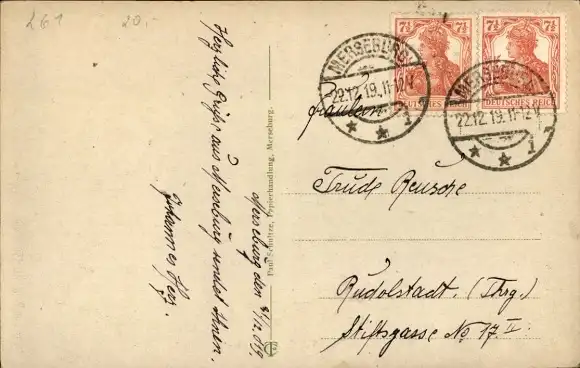 L61 20.-
Herzliche Grüße aus Merseburg sendet Ihnen.
Johannes Herz.
Merseburg den 21/12. 019.
Paul Schultze, Papierhandlung, Merseburg.
7½ 7½
DEUTSCHES REICH
DEUTSCHES REICH
MERSEBURG
22.12.19.11-12V
* * 1
MERSEBURG
22.12.19.11-12V
* * 1
Fräulein
Trude Reusche
Rudolstadt. (Thrg.)
Stiftsgasse No 17. II